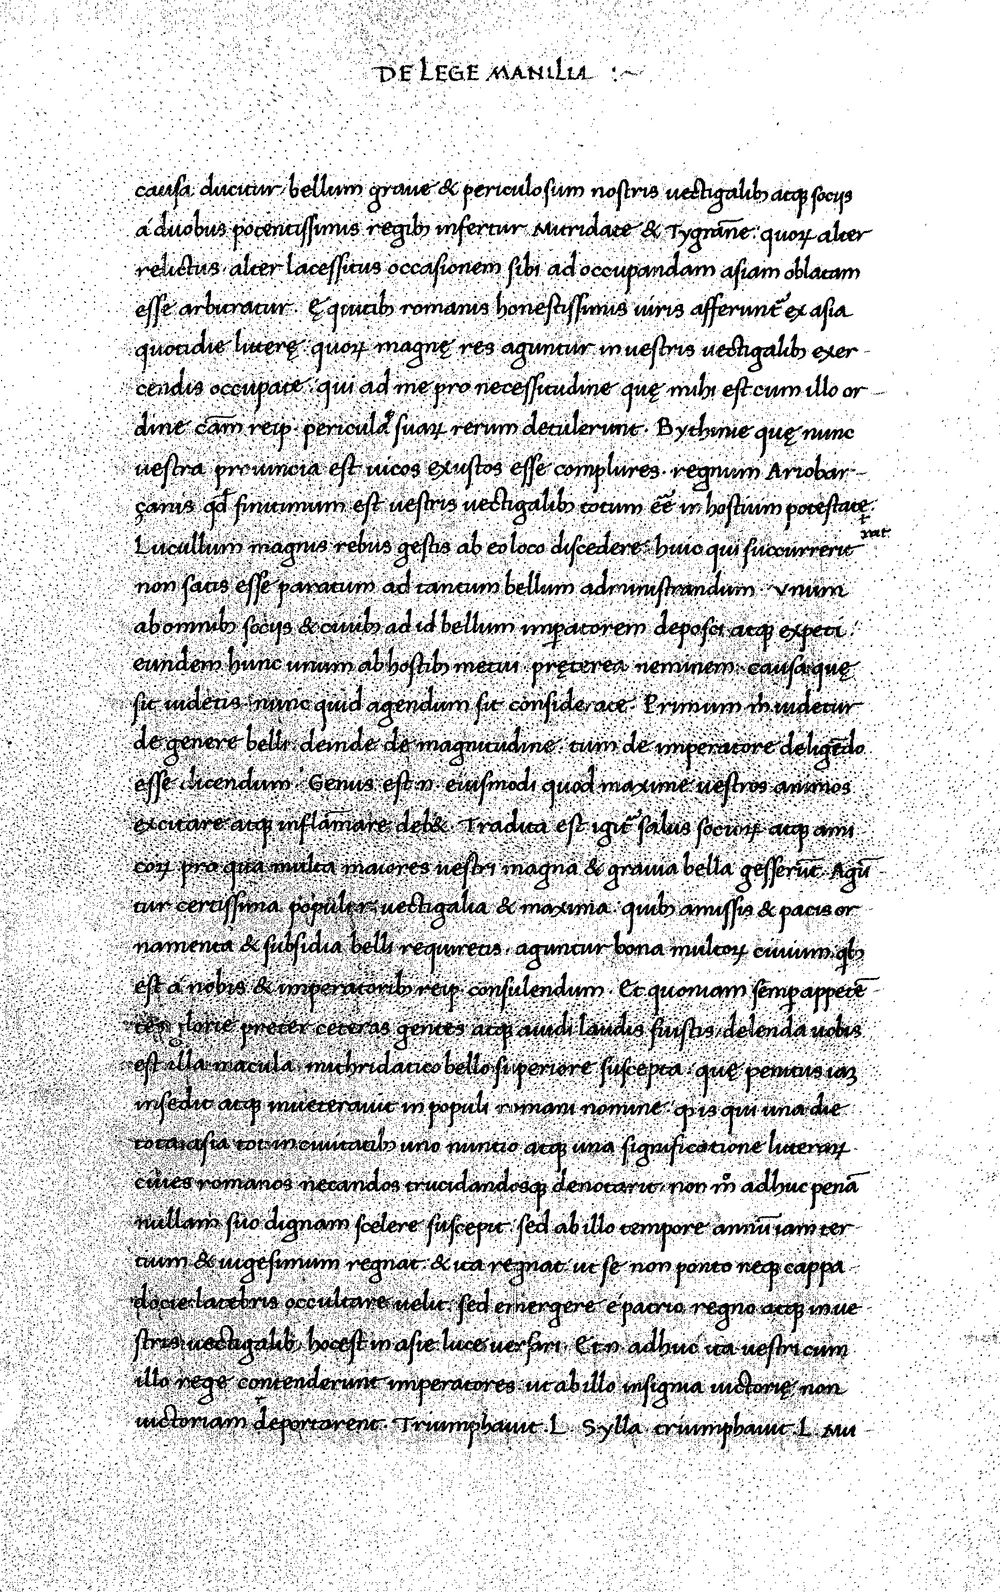 DE LEGE MANILIA :~
causa ducitur, bellum graue & periculosum nostris uectigalib; atq; socijs
á duobus potentissimis regib; infertur Mitridate & Tygrāne. quoꝝ alter
relictus, alter lacessitus occasionem sibi ad occupandam asiam oblatam
esse arbitratur. Ęquitib; romanis honestissimis uiris afferunt᷑ ex asia
quotidie litterę. quoꝝ magnę res aguntur in uestris uectigalib; exer-
cendis occupate. qui ad me pro necessitudine quę mihi est cum illo or-
dine cām reip. periculaq̷ suaꝝ rerum detulerunt. Bythinie quę nunc
uestra prouincia est uicos exustos esse complures. regnum Ariobar-
çanis qđ finitimum est uestris uectigalib; totum eē in hostium potestate.
Lucullum magnis rebus gestis ab eo loco discedere. huic qui succurrerit
non satis esse paratum ad tantum bellum administrandum. Vnum
ab omnib; socijs & ciuib; ad id bellum imꝑatorem deposci atq; expeti.
eundem hunc unum ab hostib; metui. pręterea neminem. causa quę
sit uidetis. nunc quid agendum sit considerate. Primum m̊ uidetur
de genere belli. deinde de magnitudine. tum de imperatore deligēdo
esse dicendum. Genus est n. eiusmodi quod maxime uestros animos
excitare atq; inflāmare deb&. Tradita est igit᷑ salus socioꝝ atq; ami
coꝝ pro qua multa maiores uestri magna & grauia bella gesserūt. Agū-
tur certissima populi r. uectigalia & maxima. quib; amissis & pacis or-
namenta & subsidia belli requiretis. aguntur bona multoꝝ ciuium qb;
est á nobis & imperatorib; reip. consulendum. Et quoniam semꝑ appetē-
tes glorie preter ceteras gentes atq; auidi laudis fuistis, delenda uobis
est illa macula, mithridatico bello superiore suscepta. quę penitus iaꝫ
insedit atq; inueterauit in populi romani nomine. ꝙ is qui una die
tota asia tot in ciuitatib; uno nuntio atq; una significatione litteraꝝ
ciues romanos necandos trucidandosq; denotarit. non m̊ adhuc penā
nullam suo dignam scelere suscepit. sed ab illo tempore annū iam ter-
tium & uigesimum regnat. & ita regnat ut se non ponto neq; cappa-
docie latebris occultare uelit. sed emergere e patrio regno atq; in ue-
stris uectigalib; hoc est in asie luce uersari. Et n adhuc ita uestri cum
illo rege contenderunt imperatores. ut ab illo insignia uictorię non
uictoriam deportarent. Triumphauit L. Sylla. triumphauit L. Mu-